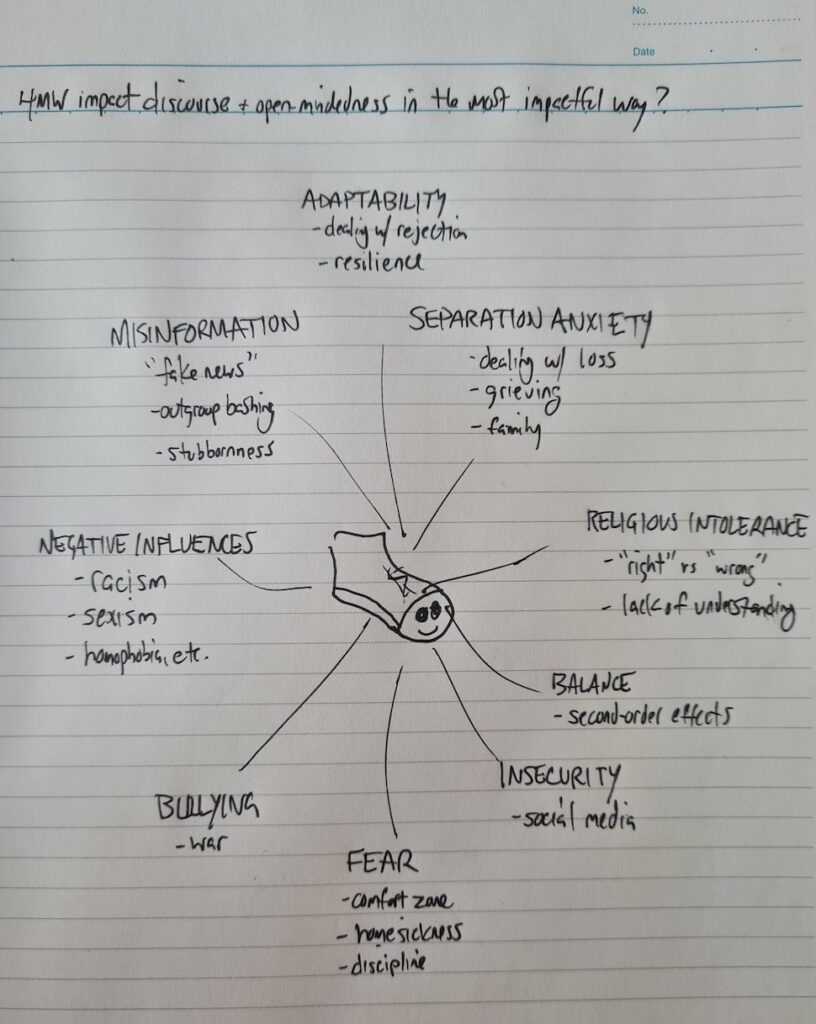 No.
Date
HMW impact discourse + open-mindedness in the most impactful way?
ADAPTABILITY
- dealing w/ rejection
- resilience
MISINFORMATION
"fake news"
- outgroup bashing
- stubbornness
SEPARATION ANXIETY
- dealing w/ loss
- grieving
- family
NEGATIVE INFLUENCES
- racism
- sexism
- homophobia, etc.
RELIGIOUS INTOLERANCE
- "right" vs "wrong"
- lack of understanding
BALANCE
- second-order effects
INSECURITY
- social media
BULLYING
- war
FEAR
- comfort zone
- homesickness
- discipline